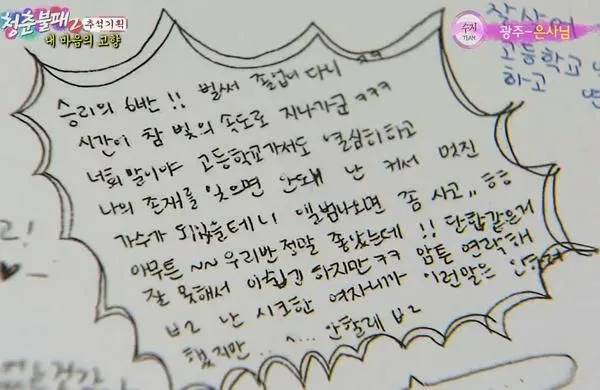 청춘불패2 추석기획
내 마음의 고향
수지 TEAM 광주-은사님
고등학교
하고
승리의 6반!! 벌써 졸업이다니 ㅋㅋ
시간이 참 빛의 속도로 지나가군 ㅋㅋㅋ
너희 말이야 고등학교가서도 열심히하고
나의 존재를 잊으면 안돼 난 커서 멋진
가수가 되있을테니 앨범나오면 좀 사고,, ㅎㅎ
아무튼 ~~ 우리반 정말 좋았는데!! 단합같은거
잘 못해서 아쉽긴 하지만ㅋㅋ 암튼 연락해
ㅂ2 난 시크한 여자니까 이런말은 안할려
했지만 ... 안할래 ㅂ2